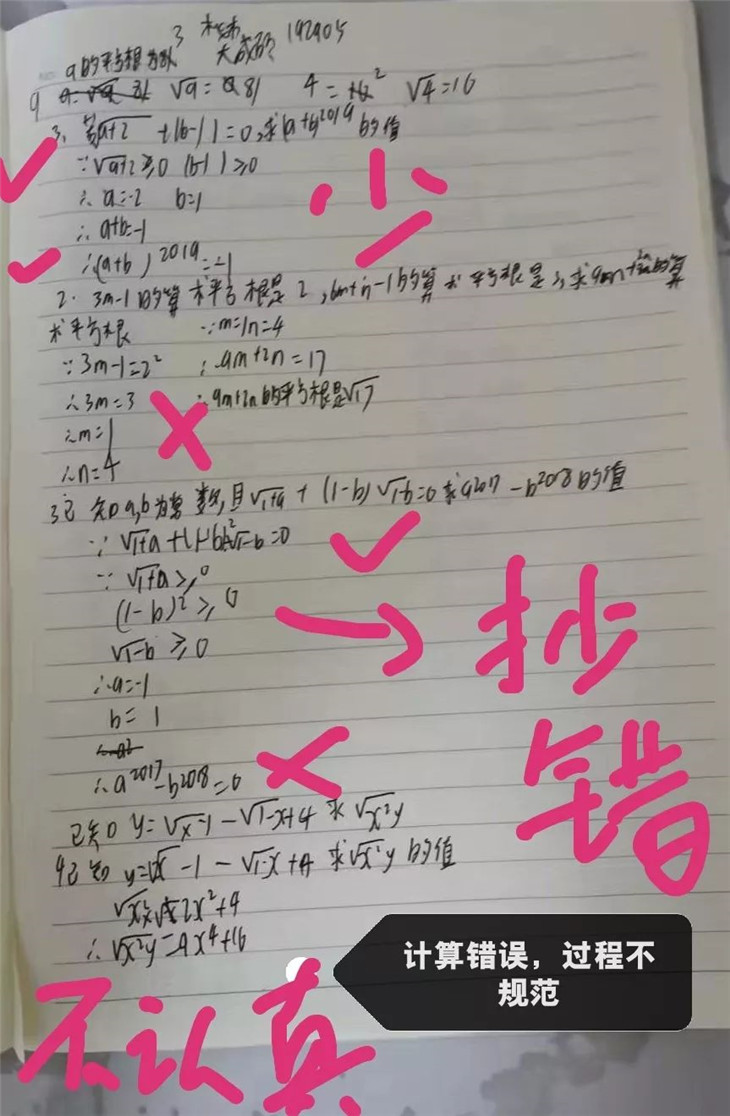 3
192905
a的平方根为
9 √a=81 4=16² √4=16
3、若√a+2 +|b-1|=0,求(a+b)2019的值
∵√a+2≥0 |b-1|≥0
∴a=-2 b=1
∴a+b=-1
∴(a+b)2019=-1
少
2. 3m-1的算术平方根是2,6m+n-1的算术平方根是3,求9m+2n的算
术平方根 ∵m=1n=4
∵3m-1=2² ∴9m+2n=17
∴3m=3 ∴9m+2n的平方根是√17
∴m=1
∴n=4
3已知a,b为常数,且√1+a+(1-b)√1-b=0求a2017-b2018的值
∵√1+a+(1-b)²√1-b=0
∵√1+a≥0
(1-b)²≥0
√1-b≥0
∴a=-1
b=1
抄
错
∴a2017-b208=0
已知y=√x-1-√1-x+4求√x²y
4已知y=√x-1-√1-x+4求√x²y的值
2x²+4
∴√x²y=4x⁴+16
计算错误，过程不
规范
不认真